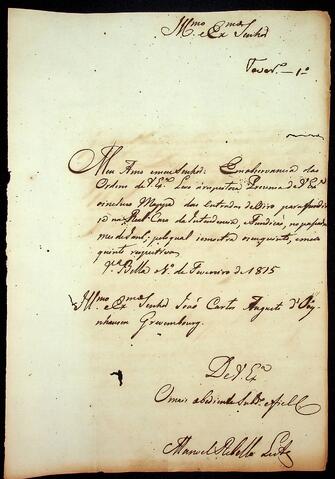 Illmo e Exmo Senhor
Fevero 1º
Meu Amo e meu Senhor: Em observancia das
Ordens de V. Exa Levo a respeitosa Presença de V. Exa
o incluso Mappa das entradas de Oiro para fundir-
na Real Caza da Intendencia, e Fundição, no passado
mes de Janro, pelo qual se mostra o seu quinto, e mea
quinto respectivos.
Va Bella 1º de Fevereiro de 1815
Illmo e Exmo Senhor João Carlos Augusto d'Oey-
nhausen Grevembourg.
De V. Exa
O mais obediente Subdo e fiel C.
Manoel Rebello Leite